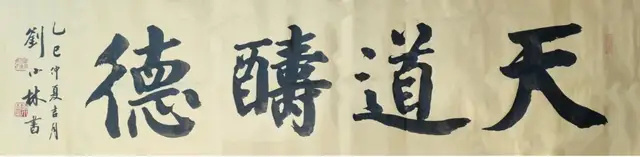 天道醻德
乙巳仲夏吉月
劉小林書